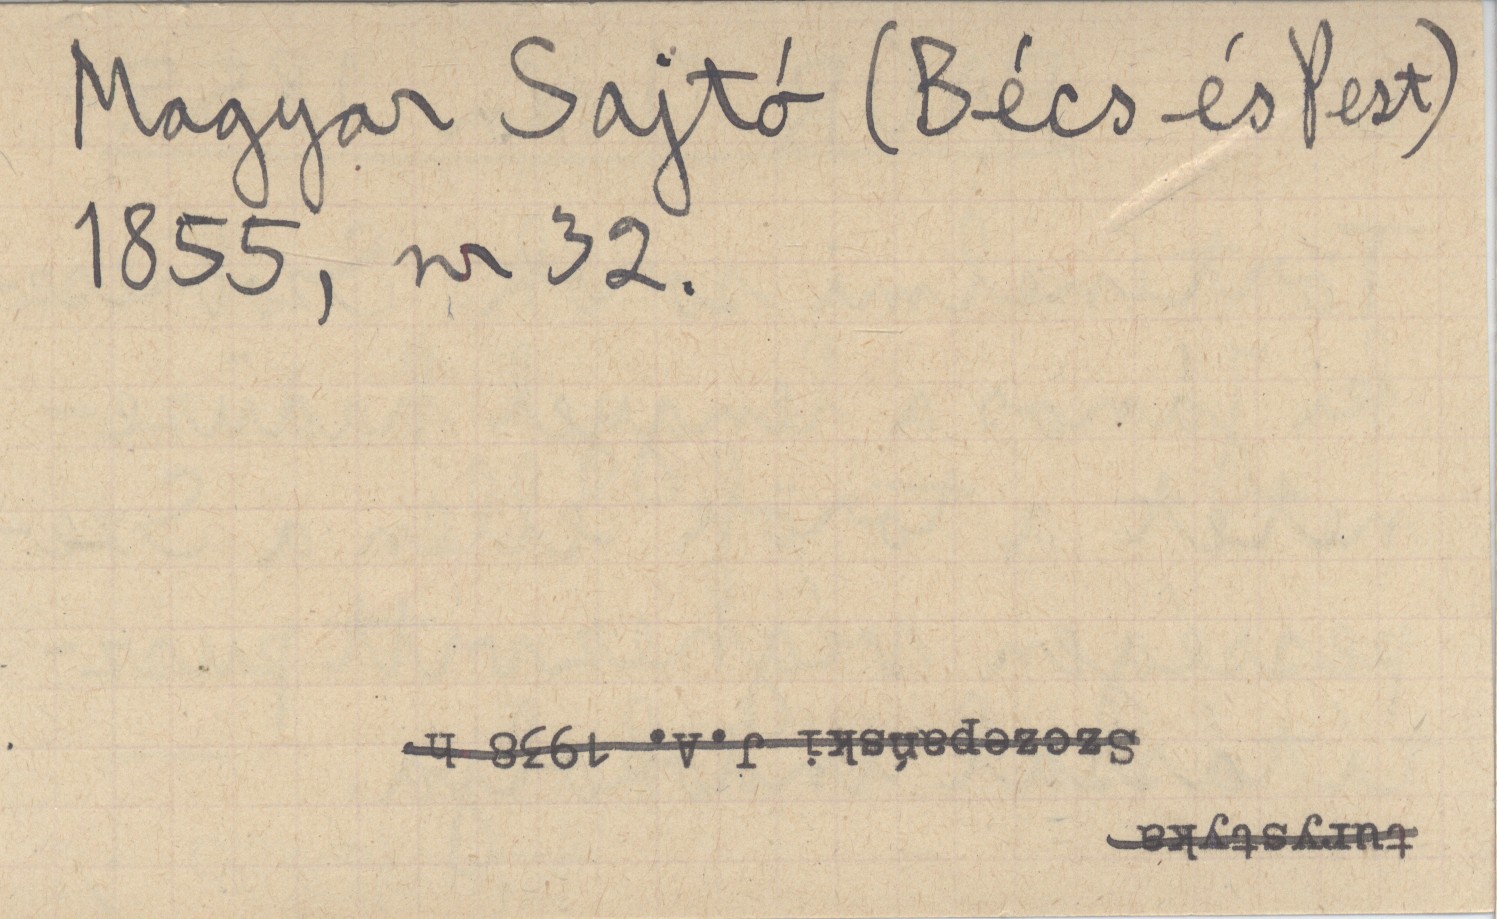 Magyar Sajtó (Bécs és Pest)
1855, nr 32.
turystyka
Szczepański J.A. 1938 h